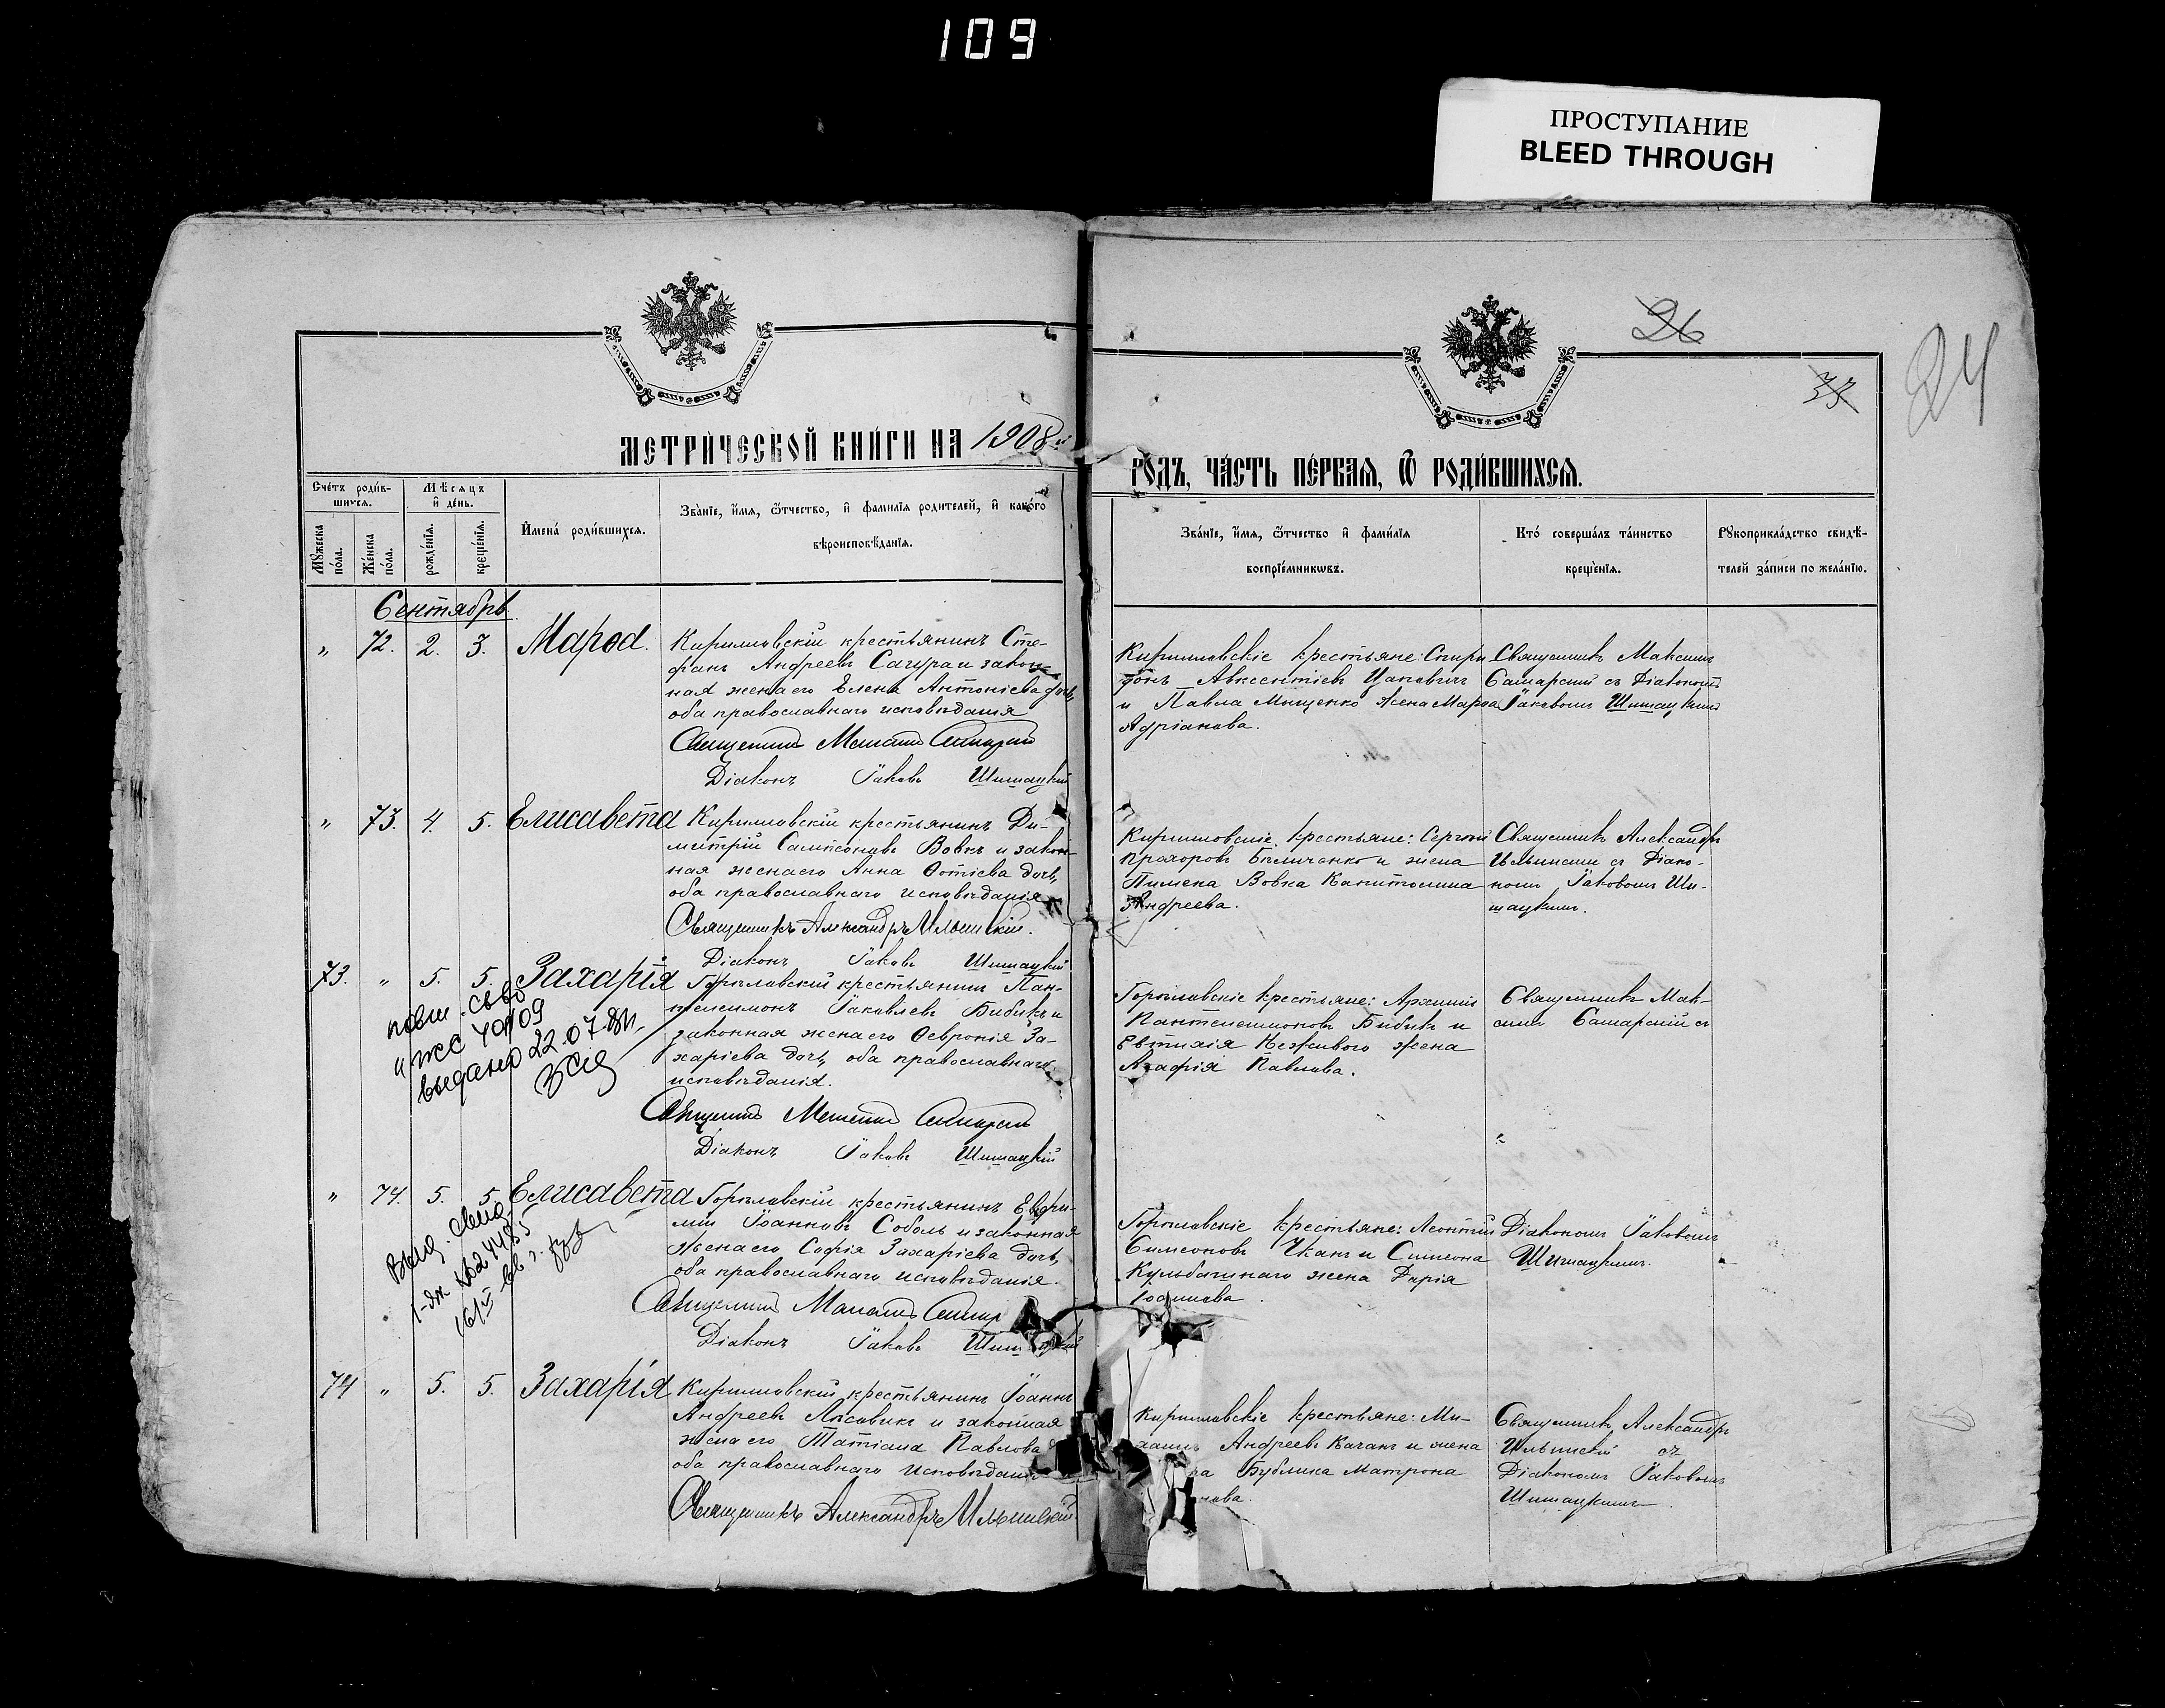 109
ПРОСТУПАНИЕ
BLEED THROUGH
26
33
24
МЕТРИЧЕСКОЙ КНИГИ НА 1908й
ГОДЪ, ЧАСТЬ ПЕРВАЯ, Ѿ РОДИВШИХСЯ.
Счетъ родив-
шихся.
Мѣсяцъ
и день.
Мужеска пола.
Женска пола.
рожденія.
крещенія.
Имена родившихся.
Званіе, имя, ѿтчество, и фамилія родителей, и какого
вѣроисповѣданія.
Званіе, имя, ѿтчество и фамилія
воспріемниковъ.
Кто совершалъ таинство
крещенія.
Рукоприкладство свидѣ-
телей записи по желанію.
Сентябрь
„ 72. 2. 3. Марѳа.
Кирилловскій крестьянинъ Сте-
фанъ Андреевъ и закон-
ная жена его Елена Антоніева дочь,
оба православнаго исповѣданія
Священникъ Максимъ Самарскій
Діаконъ Іаковъ Шишацкій
Кирилловскіе крестьяне: Спири-
донъ Авксентіевъ Цапович
и Павла Мищенко жена Марѳа
Адріанова.
Священникъ Максимъ
Самарскій съ Діакономъ
Іаковомъ Шишацкимъ
„ 73. 4. 5. Елисавета
Кирилловскій крестьянинъ Ди-
митрій Сампсоновъ Вовкъ и закон-
ная жена его Анна Фотіева дочь,
оба православнаго исповѣданія
Священникъ Александръ Ильинскій.
Діаконъ Іаковъ Шишацкій
Кирилловскіе крестьяне: Сергій
Прохоровъ Бѣличенко и жена
Пимена Вовка Капитолина
Андреева.
Священникъ Александръ
Ильинскій съ Діако-
номъ Іаковомъ Ши-
шацкимъ.
73. „ 5. 5. Захарія
Горѣлавскій крестьянинъ Пан-
телеимонъ Іаковлевъ Бибикъ и
законная жена его Февронія За-
харіева дочь, оба православнаго
исповѣданія.
Священникъ Максимъ Самарскій
Діаконъ Іаковъ Шишацкій
повт. св-во
выдано 22.07.
Пантелеимоновъ Бибикъ и
Евтихія Неживого жена
Агафія Павлова.
Священникъ Мак-
симъ Самарскій съ
„ 74. 5. 5. Елисавета
Горѣлавскій крестьянинъ Евфи-
мій Іоанновъ Соболь и законная
жена его Софія Захаріева дочь,
оба православнаго исповѣданія.
Священникъ Максимъ Самар
Діаконъ Іаковъ Шишацкій
Выд. свид.
Горѣлавскіе крестьяне: Леонтій
Симеоновъ Чканъ и Симеона
Кульбачнаго жена Дарія
Іоаннова
Діакономъ Іаковомъ
Шишацкимъ.
74 „ 5. 5. Захарія
Кирилловскій крестьянинъ Іоаннъ
Андреевъ Лисовикъ и законная
жена его Татіана Павлова
оба православнаго исповѣданія
Священникъ Александръ Ильинскій
Кирилловскіе крестьяне: Ми-
хаилъ Андреевъ Качанъ и жена
ра Бублика Матрона
нова.
Священникъ Александръ
Ильинскій съ
Діакономъ Іаковомъ
Шишацкимъ.